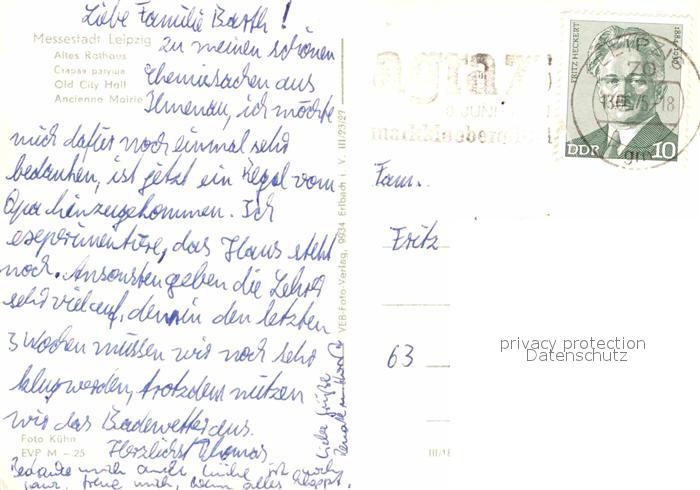 Liebe Familie Barth!
Messestadt Leipzig
Altes Rathaus
Старая ратуша
Old City Hall
Ancienne Mairie
zu meinen schönen
Chemiesachen aus
Ilmenau, ich möchte
mich dafür noch einmal sehr
bedanken, ist jetzt ein Regal vom
Opa hinzugekommen. Ich
experimentiere, das Haus steht
noch. Ansonsten geben die Lehrer
sehr viel auf, denn in den letzten
3 Wochen müssen wir noch sehr
klug werden, trotzdem nützen
wir das Badewetter aus.
Herzlichst Thomas
Foto Kühn
EVP M - 25
Bedanke mich auch,
freue mich, wenn alles klappt,
Liebe Grüße
VEB Foto-Verlag, 9934 Erlbach i. V. III/23/27
agra 75
JUNI
markkleeberg
FRITZ HECKERT
1884-1936
DDR 10
LEIPZIG
13.06.75-18
Fam.
Fritz
63
privacy protection
Datenschutz
III/18